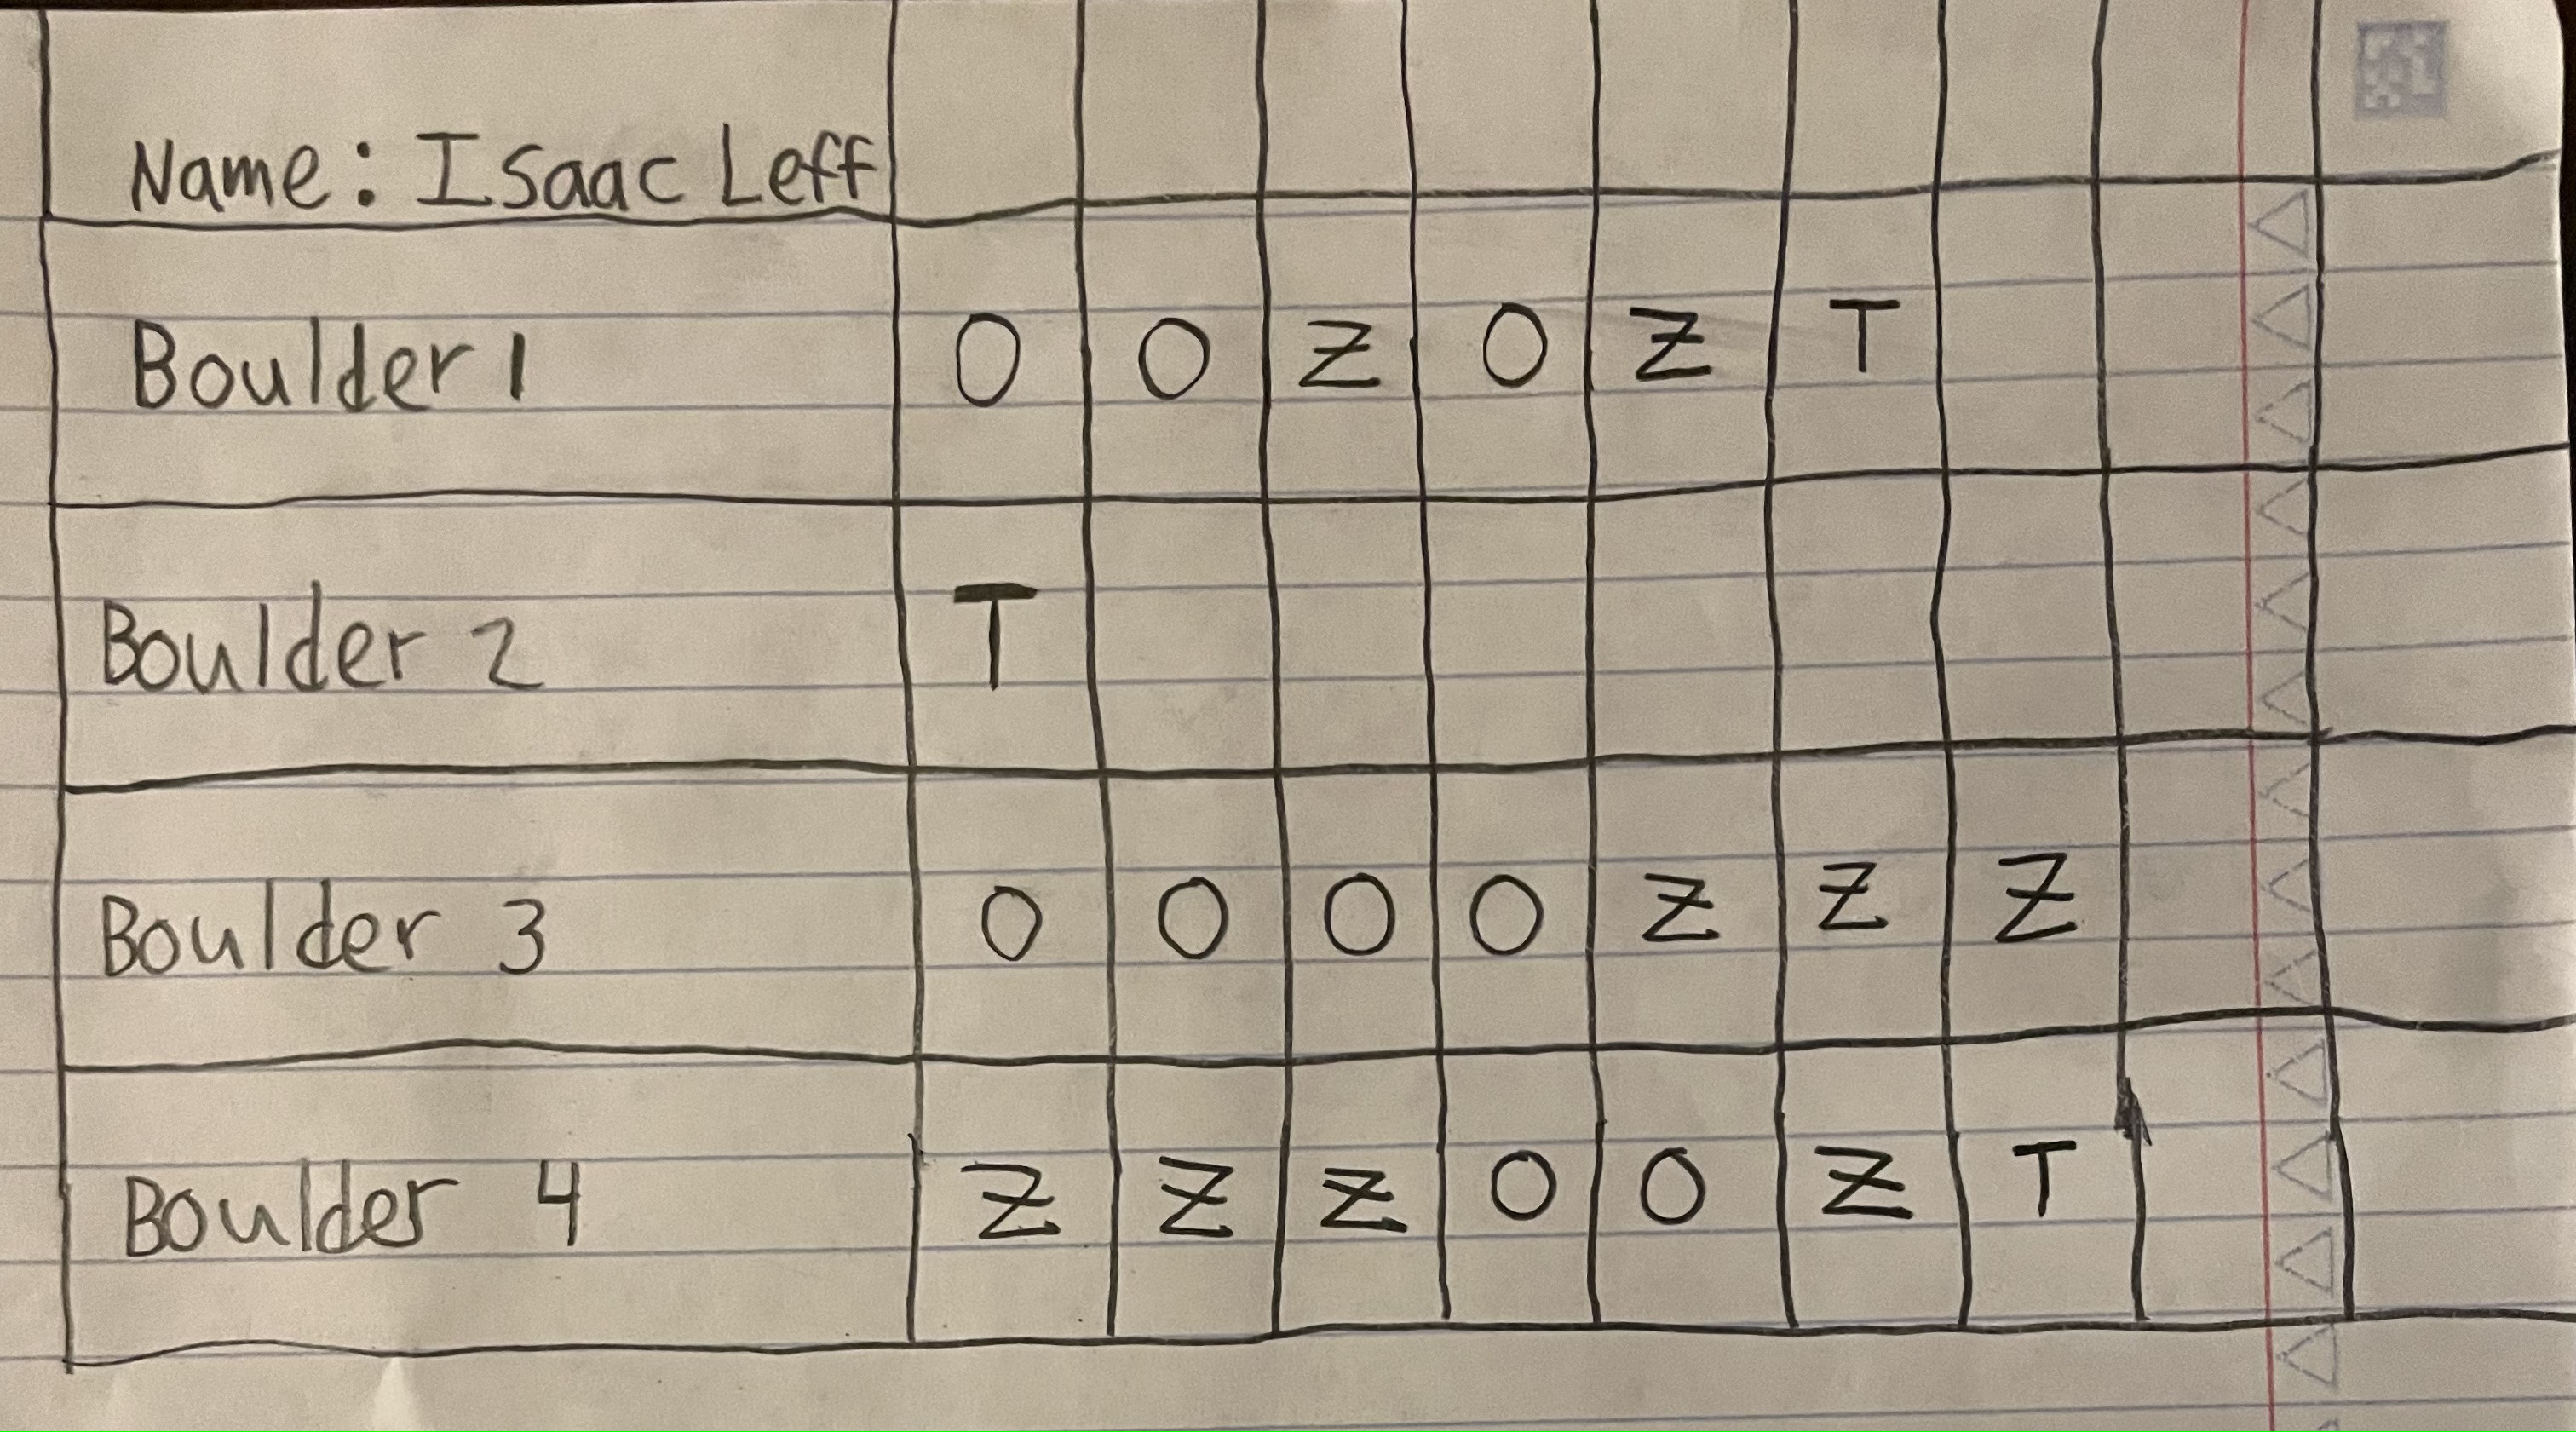 Name: Isaac Leff
Boulder 1 O O Z O Z T
Boulder 2 T
Boulder 3 O O O O Z Z Z
Boulder 4 Z Z Z O O Z T